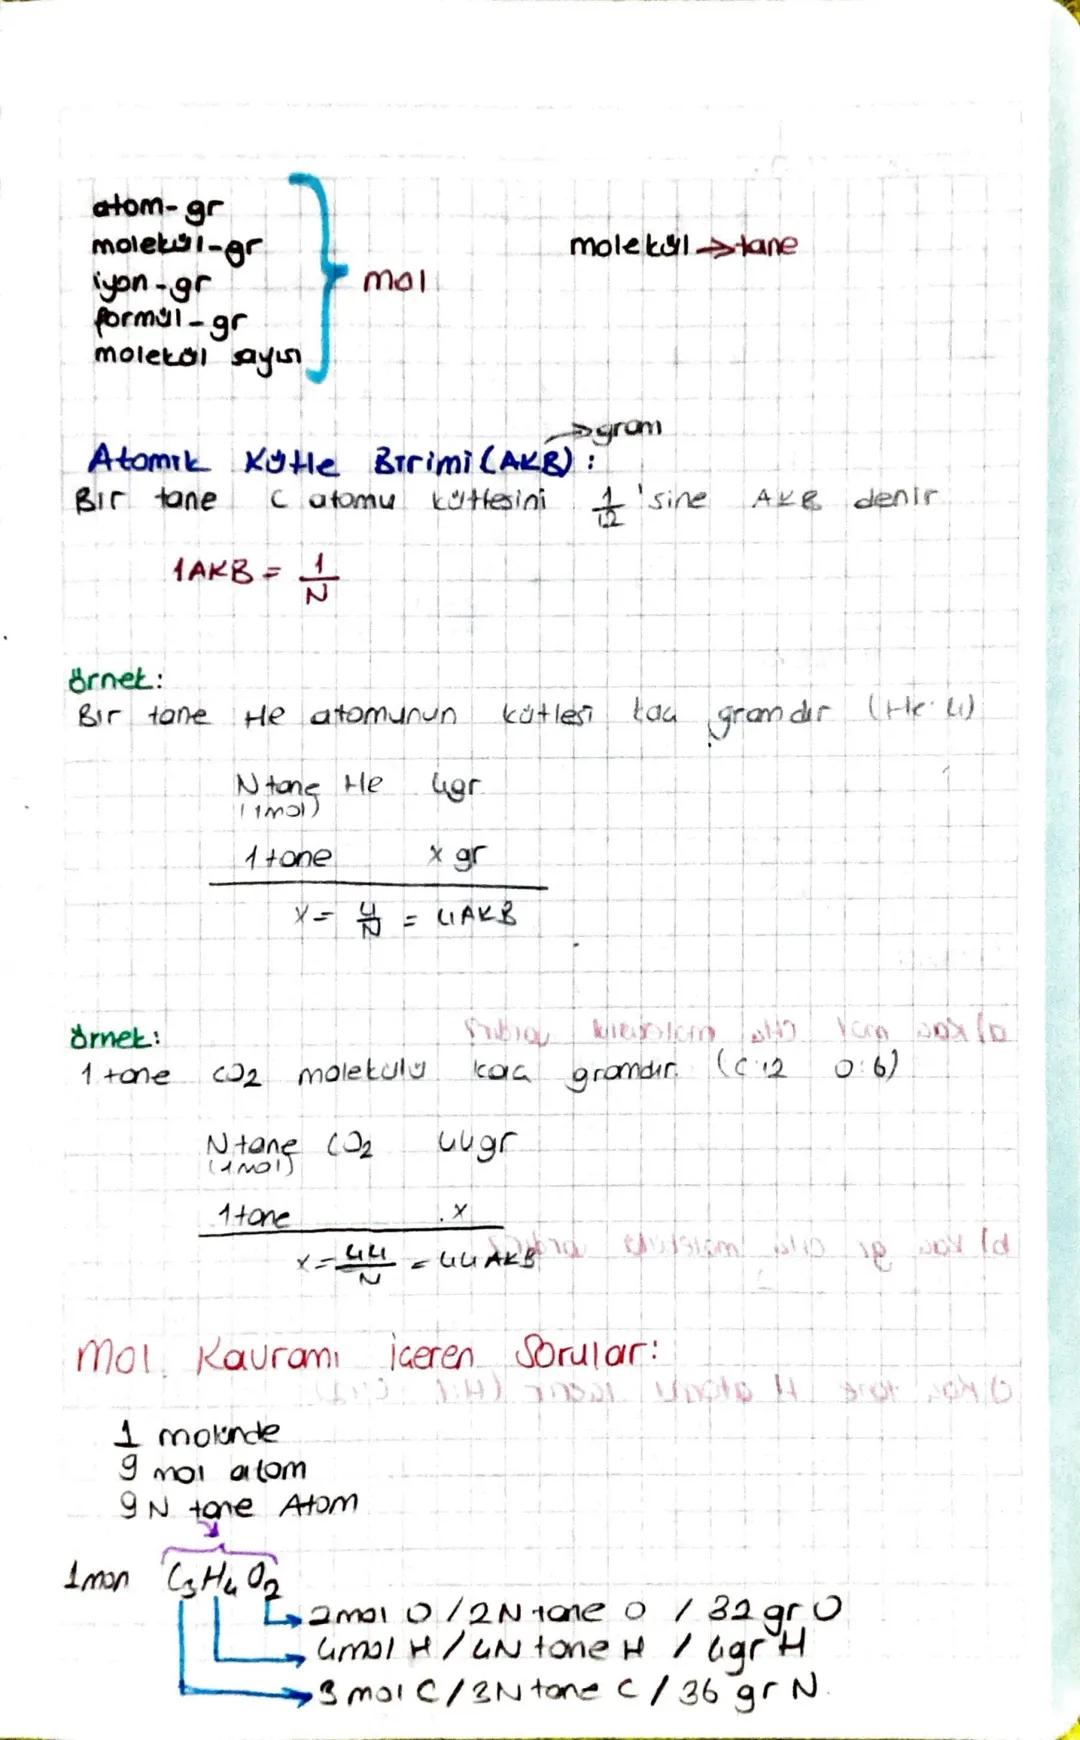 atom-gr
molekül-gr
iyon-gr
formül-gr
molekül sayısı
mol
molekül → tane
→ gram
Atomik Kütle Birimi (AKB):
Bir tane C atomu kütlesini 1/12 'sine AKB denir
1AKB = 1/N
örnek:
Bir tane He atomunun kütlesi kaç gramdır (He:4)
N tane He 4gr
(1mol)
1 tane x gr
x = 4/N = 4AKB
örnek:
1 tane CO2 molekülü kaç gramdır. (C:12 O:6)
N tane CO2 44gr
(1mol)
1 tane x
x = 44/N = 44 AKB
Mol Kavramı içeren Sorular:
1 molünde
9 mol atom
9N tane Atom
1mon C3H4O2
2mol O / 2N tane O / 32 gr O
4mol H / 4N tane H / 4gr H
3 mol C / 3N tane C / 36 gr N.